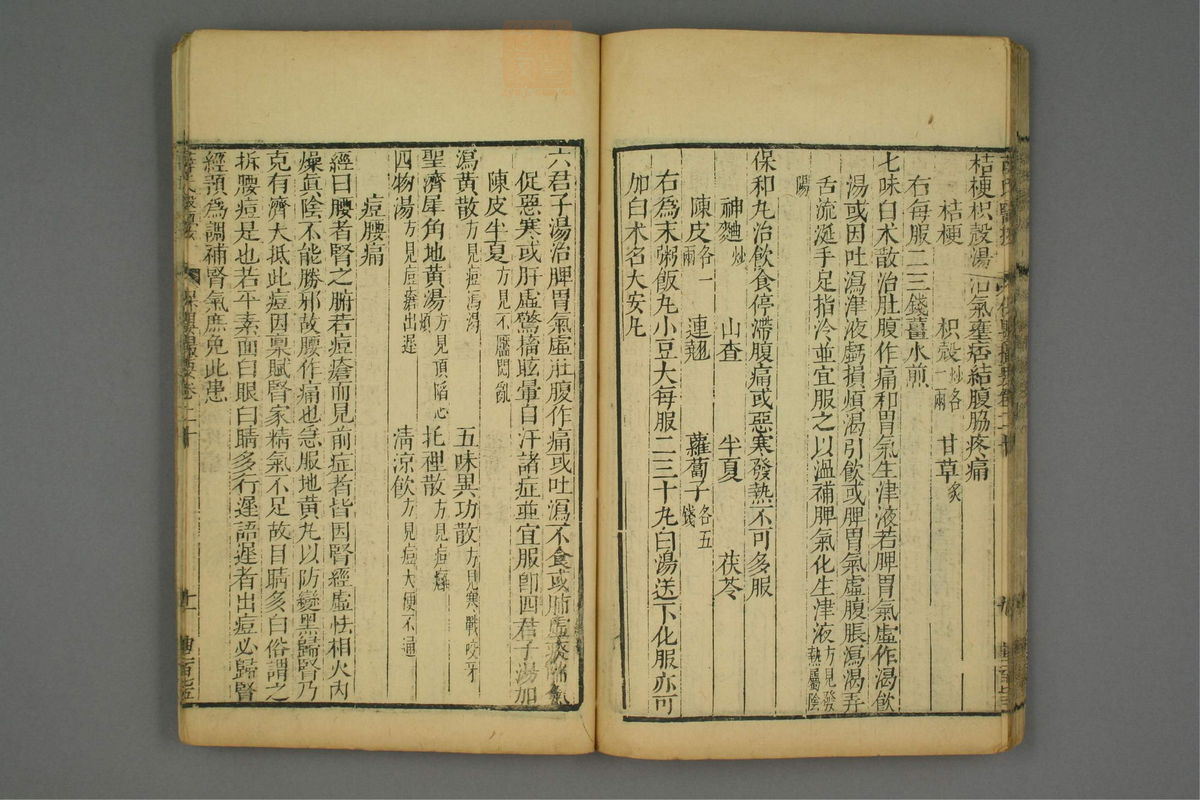 桔梗枳殼湯治氣壅痞結腹脇疼痛
桔梗 枳殼炒各一兩 甘草炙
右每服二三錢薑水煎
七味白术散治肚腹作痛和胃氣生津液若脾胃氣虛作渴飲
湯或因吐瀉津液虧損煩渴引飲或脾胃氣虛腹脹瀉渴弄
舌流涎手足指冷並宜服之以溫補脾氣化生津液方見發熱屬陰
陽
保和丸治飲食停滯腹痛或惡寒發熱不可多服
神麯炒 山查 半夏 茯苓
陳皮各一兩 連翹 蘿蔔子各五錢
右為末粥飯丸小豆大每服二三十丸白湯送下化服亦可
加白术名大安丸
六君子湯治脾胃氣虛肚腹作痛或吐瀉不食或肺虛痰喘氣
促惡寒或肝虛驚搐眩暈自汗諸症並宜服卽四君子湯加
陳皮半夏方見不靨悶亂
瀉黃散方見痘瀉渴 五味異功散方見寒戰咬牙
聖濟犀角地黃湯方見頂陷心煩 托裡散方見痘癰
四物湯方見痘瘡出遲 清涼飲方見痘大便不通
痘腰痛
經曰腰者腎之腑若痘瘡而見前症者皆因腎經虛怯相火內
燥眞陰不能勝邪故腰作痛也急服地黃丸以防變黑歸腎乃
克有濟大抵此痘因稟賦腎家精氣不足故目睛多白俗謂之
折腰痘是也若平素面白眼白睛多行遲語遲者出痘必歸腎
經預為調補腎氣庶免此患
保嬰撮要卷二十